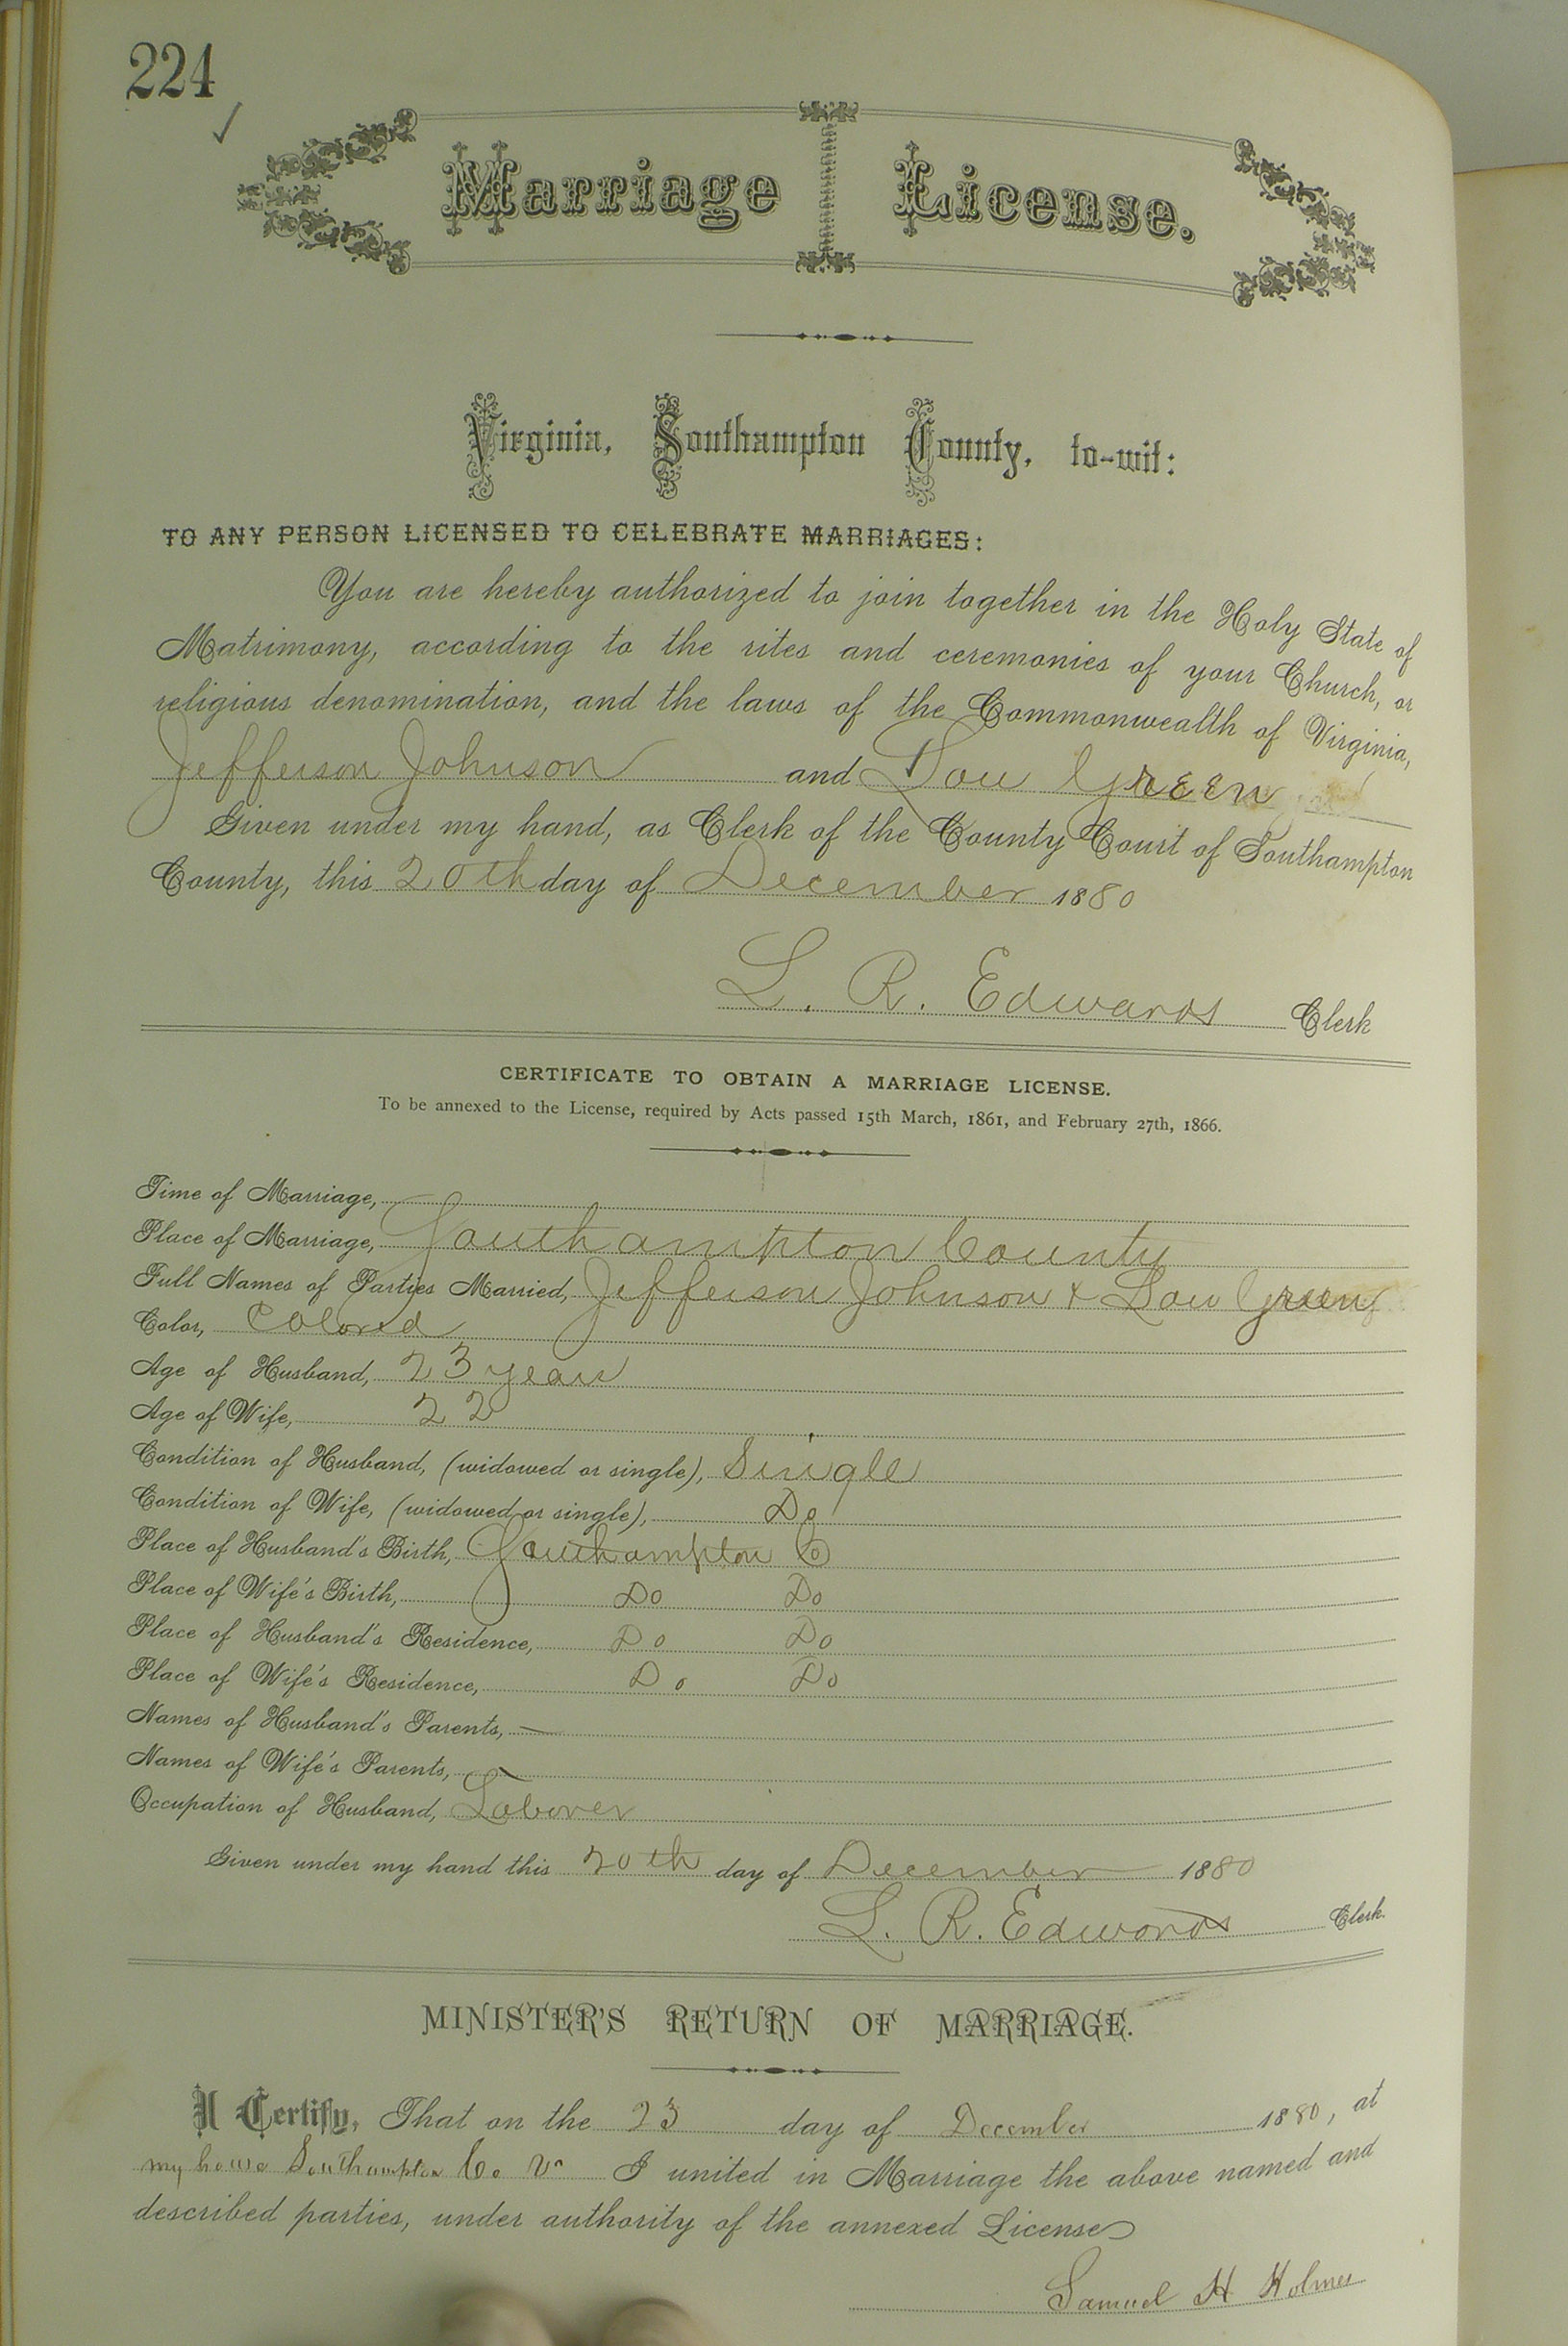 224
Marriage License.
Virginia, Southampton County, to-wit:
TO ANY PERSON LICENSED TO CELEBRATE MARRIAGES:
You are hereby authorized to join together in the Holy State of
Matrimony, according to the rites and ceremonies of your Church, or
religious denomination, and the laws of the Commonwealth of Virginia,
Jefferson Johnson and Lou Green
Given under my hand, as Clerk of the County Court of Southampton
County, this 20th day of December 1880
L. R. Edwards Clerk
CERTIFICATE TO OBTAIN A MARRIAGE LICENSE.
To be annexed to the License, required by Acts passed 15th March, 1861, and February 27th, 1866.
Time of Marriage,
Place of Marriage, Southampton County
Full Names of Parties Married, Jefferson Johnson & Lou Green
Color, Colored
Age of Husband, 23 years
Age of Wife, 22
Condition of Husband, (widowed or single), Single
Condition of Wife, (widowed or single), Do
Place of Husband's Birth, Southampton Co
Place of Wife's Birth, Do Do
Place of Husband's Residence, Do Do
Place of Wife's Residence, Do Do
Names of Husband's Parents, —
Names of Wife's Parents, —
Occupation of Husband, Laborer
Given under my hand this 20th day of December 1880
L. R. Edwards Clerk.
MINISTER'S RETURN OF MARRIAGE.
I Certify, That on the 23 day of December 1880, at
my house Southampton Co. Va I united in Marriage the above named and
described parties, under authority of the annexed License
Samuel H Holmes